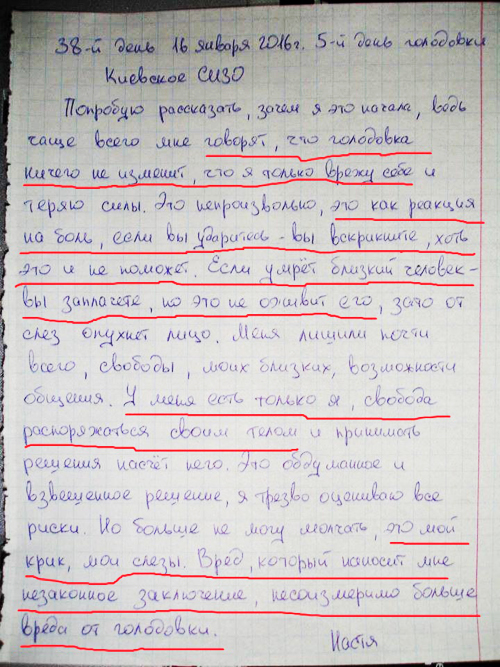 38-й день 16 января 2016г. 5-й день голодовки
Киевское СИЗО
Попробую рассказать, зачем я это начала, ведь
чаще всего мне говорят, что голодовка
ничего не изменит, что я только врежу себе и
теряю силы. Это непроизвольно, это как реакция
на боль, если вы ударитесь - вы вскрикните, хоть
это и не поможет. Если умрёт близкий человек-
вы заплачете, но это не оживит его, зато от
слез опухнет лицо. Меня лишили почти
всего, свободы, моих близких, возможности
общения. У меня есть только я, свобода
распоряжаться своим телом и принимать
решения насчёт него. Это обдуманное и
взвешенное решение, я трезво оцениваю все
риски. Но больше не могу молчать, это мой
крик, мои слезы. Вред, который наносит мне
незаконное заключение, несоизмеримо больше
вреда от голодовки.
Настя